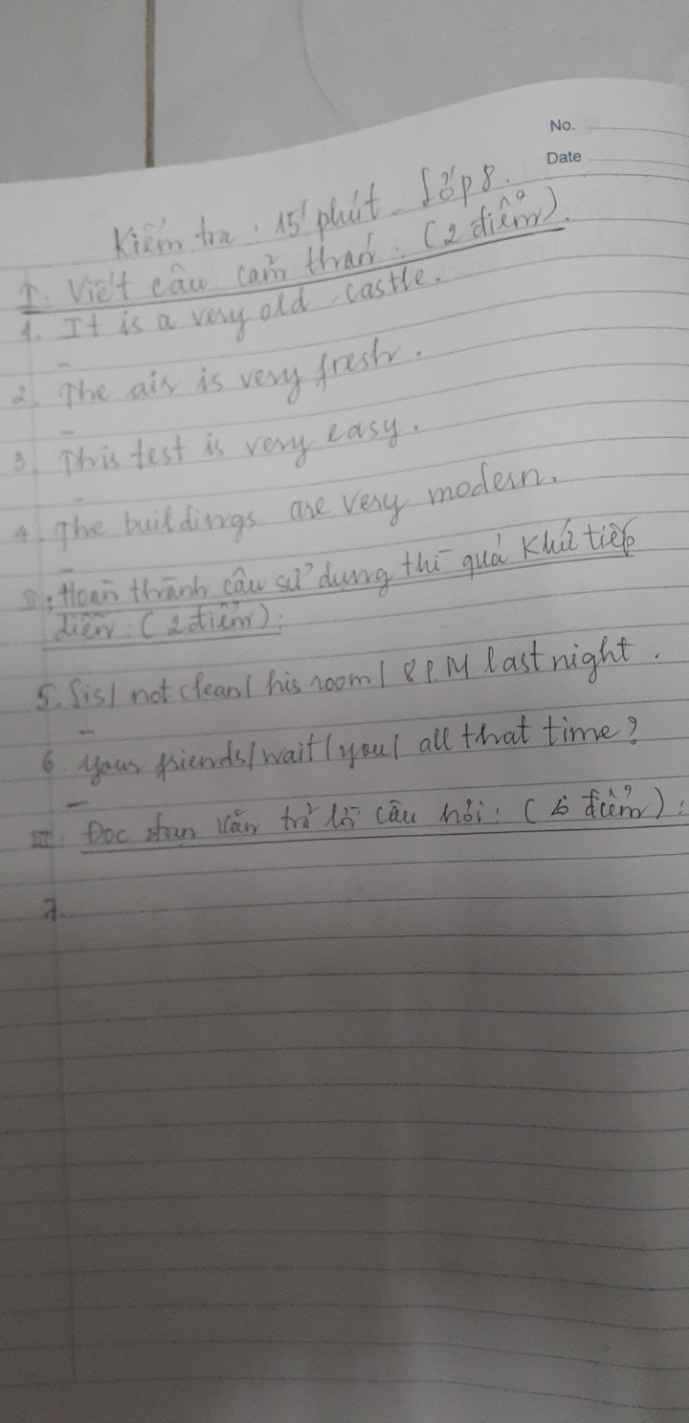 No.
Date
Kiểm tra. 15' phút. Lớp 8.
I. Viết câu cảm thán: (2 điểm).
1. It is a very old castle.
-
2. The air is very fresh.
-
3. This test is very easy.
-
4. The buildings are very modern.
-
II. Hoàn thành câu sử dụng thì quá khứ tiếp
diễn: (2 điểm):
5. not clean/ his room/ 8 P.M last night.
-
6. your friends/ wait/ you/ all that time?
-
III. Đọc đoạn văn trả lời câu hỏi: (6 điểm):
7.